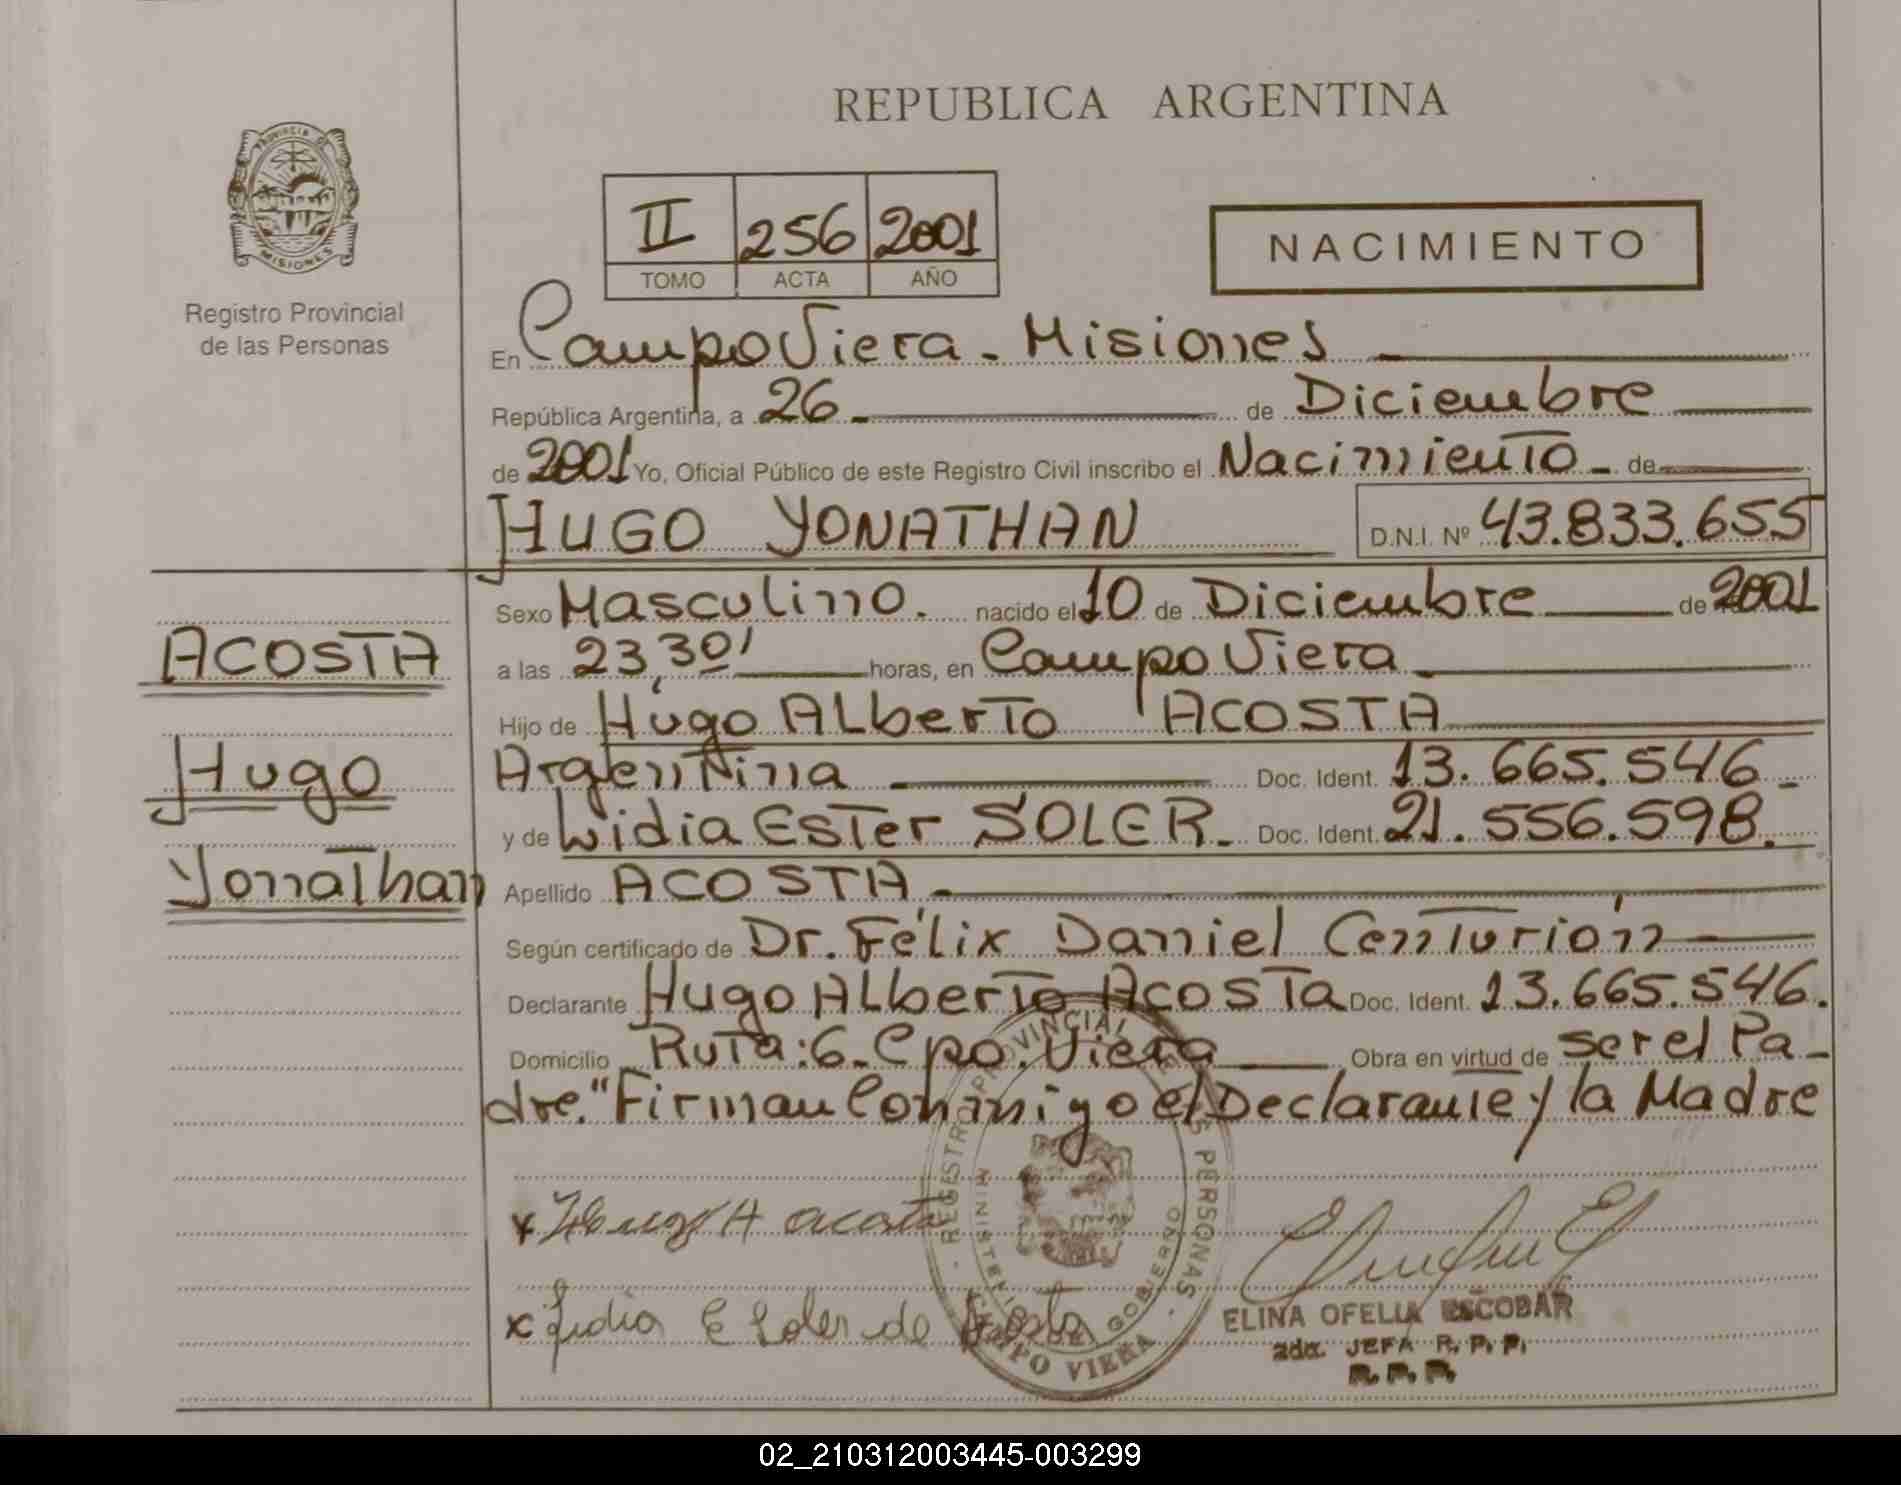 REPUBLICA ARGENTINA
PROVINCIA DE
MISIONES
Registro Provincial
de las Personas
II 256 2001
TOMO ACTA AÑO
NACIMIENTO
En Campo Viera - Misiones
República Argentina, a 26 de Diciembre
de 2001 Yo, Oficial Público de este Registro Civil inscribo el Nacimiento de
HUGO YONATHAN D.N.I. Nº 43.833.655
Sexo Masculino. nacido el 10 de Diciembre de 2001
ACOSTA
a las 23,30' horas, en Campo Viera
Hijo de Hugo Alberto ACOSTA
Hugo
Argentina Doc. Ident. 13.665.546
y de Lidia Ester SOLER. Doc. Ident. 21.556.598.
Yonathan
Apellido ACOSTA
Según certificado de Dr. Félix Daniel Centurión
Declarante Hugo Alberto Acosta Doc. Ident. 13.665.546.
Domicilio Ruta: 6 - Cpo. Viera Obra en virtud de ser el Pa-
dre." Firman Conmigo el Declarante y la Madre
x Hugo A acosta
x Lidia E Soler de Acosta
REGISTRO PROVINCIAL DE LAS PERSONAS
CAMPO VIERA
ELINA OFELIA ESCOBAR
2da. JEFA R.P.P.
R.P.P.
02_210312003445-003299